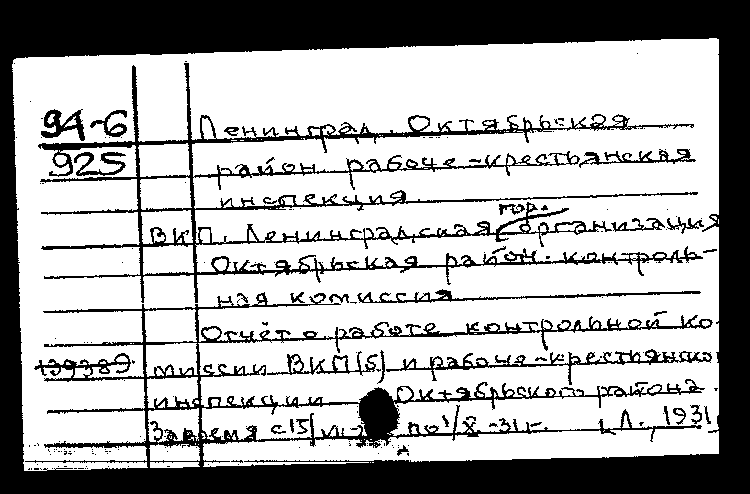 94-6
925
Ленинград. Октябрьская
район. рабоче-крестьянская
инспекция.
гор.
ВКП. Ленинградская организация
Октябрьская район. контроль-
ная комиссия
Отчёт о работе контрольной ко-
139389
миссии ВКП(б) и рабоче-крестьянско
инспекции Октябрьского района.
За время с 15/ по 1/X-31 г. Л., 1931